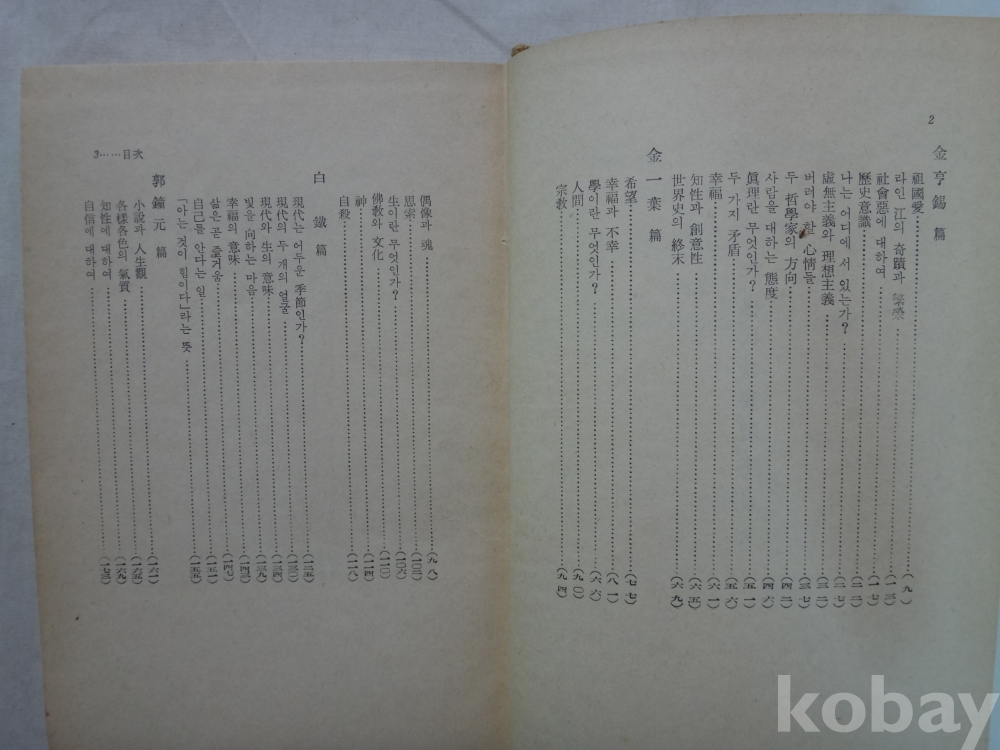 2
金亨錫篇
祖國愛……(九)
라인 江의 奇蹟과 繁榮……(一三)
社會惡에 대하여……(一七)
歷史意識……(二二)
나는 어디에 서 있는가?……(二七)
虛無主義와 理想主義……(三二)
버려야 할 心情들……(三七)
두 哲學家의 方向……(四二)
사람을 대하는 態度……(四六)
眞理란 무엇인가?……(五一)
두 가지 矛盾……(五六)
幸福……(六一)
知性과 創意性……(六五)
世界史의 終末……(六九)
金一葉篇
希望……(七七)
幸福과 不幸……(八一)
學이란 무엇인가?……(八六)
人間……(九〇)
宗教……(九四)
3……目次
偶像과 魂……(九八)
思索……(一〇三)
生이란 무엇인가?……(一〇六)
佛教와 文化……(一一〇)
神……(一一四)
自殺……(一一八)
白鐵篇
現代는 어두운 季節인가?……(一二五)
現代의 두 개의 얼굴……(一三〇)
現代와 生의 意味……(一三四)
빛을 向하는 마음……(一三九)
幸福의 意味……(一四三)
삶은 곧 즐거움……(一四七)
自己를 안다는 일……(一五一)
「아는 것이 힘이다」라는 뜻……(一五五)
郭鐘元篇
小說과 人生觀……(一六一)
各樣各色의 氣質……(一六五)
知性에 대하여……(一六九)
自信에 대하여……(一七三)
kobay